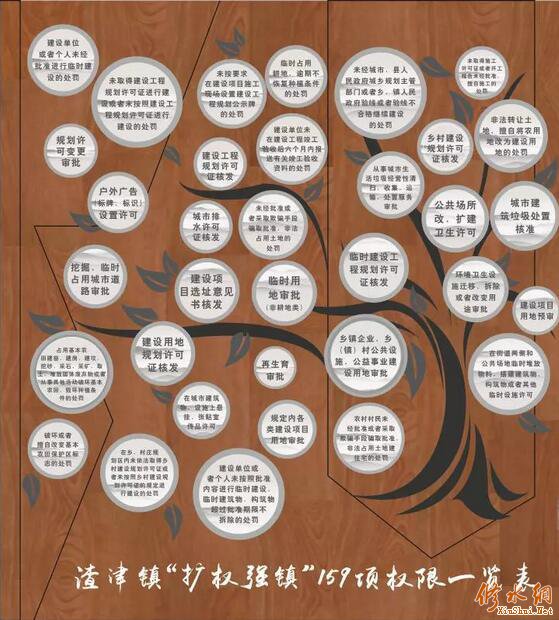 建设单位
或者个人未经
批准进行临时建
设的处罚
未取得建设工程
规划许可证进行建设
或者未按照建设工
程规划许可证进行
建设的处罚
规划许
可变更
审批
户外广告
(标牌、标识)
设置许可
挖掘、临时
占用城市道
路审批
占用基本农
田建窑、建房、建坟、
挖砂、采石、采矿、取
土、堆放固体废弃物或
从事其他活动破坏基本
农田,毁坏种植条
件的处罚
破坏或者
擅自改变基本
农田保护区标
志的处罚
未按要求
在建设项目施工
现场设置建设工
程规划公示牌的
处罚
临时占用
耕地,逾期不
恢复种植条件
的处罚
建设工程
规划许可证
核发
建设单位未
在建设工程竣工
验收后六个月内报
送有关竣工验收
资料的处罚
城市排
水许可证
核发
未经批准或
者采取欺骗手段
骗取批准,非法
占用土地的处罚
建设项
目选址意见
书核发
临时用
地审批
(非耕地类)
建设用地
规划许可证
核发
再生育
审批
在城市建筑
物、设施上悬
挂、张贴宣
传品许可
规定内各
类建设项目
用地审批
在乡、村庄规
划区内未依法取得乡
村建设规划许可证或
者未按照乡村建设规
划许可证的规定进
行建设的处罚
建设单位或
者个人未按照批准
内容进行临时建设、
临时建筑物、构筑物
超过批准期限不
拆除的处罚
未经城市、县人
民政府城乡规划主管
部门或者乡、镇人民
政府验线或者验线不
合格继续建设
的处罚
未取得施工
许可证或者开工
报告未经批准,
擅自施工的
处罚
乡村建设
规划许可
证核发
非法转让土
地,擅自将农用
地改为建设用
地的处罚
从事城市生
活垃圾经营性清
扫、收集、运
输、处置服务审
批
公共场所
改、扩建
卫生许可
城市建
筑垃圾处置
核准
临时建设工
程规划许可
证核发
环境卫生设
施迁移、拆除
或者改变用
途审批
建设项目
用地预审
乡镇企业、乡
(镇)村公共设
施、公益事业建
设用地审批
在街道两侧和
公共场地临时堆放
物料、搭建建筑物、
构筑物或者其他
临时设施许可
农村村民未
经批准或者采取
欺骗手段骗取批准,
非法占用土地建
住宅的处罚
渣津镇“扩权强镇”159项权限一览表
修水网
XiuShui.Net